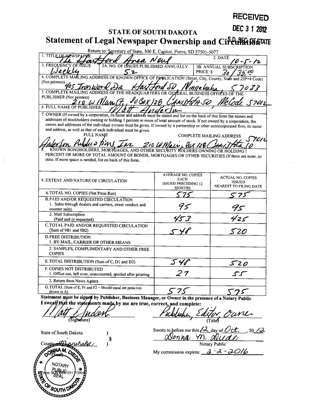 RECEIVED
DEC 31 2012
STATE OF SOUTH DAKOTA
Statement of Legal Newspaper Ownership and Circulation
Return to: Secretary of State, 500 E. Capitol, Pierre, SD 57501-5077
1. TITLE OF
2. DATE
The Hartford Area News
10-5-12
1. FREQUENCY OF ISSUE
2A. NO. OF ISSUES PUBLISHED ANNUALLY
3B. ANNUAL SUBSCRIPTION
Weekly
52
PRICE $
4. COMPLETE MAILING ADDRESS OF KNOWN OFFICE OF PUBLICATION (Street, City, County, State and ZIP+4 Code)
(Not printers)
Hartford SD Minnehaha 57033
5. COMPLETE MAILING ADDRESS OF THE HEADQUARTERS OR GENERAL BUSINESS OFFICES OF THE
PUBLISHER (Not printer)
6. FULL NAME OF PUBLISHER:
Matt
7. OWNER (If owned by a corporation, its name and address must be stated and list on the back of this form the names and
addresses of stockholders owning or holding 1 percent or more of total amount of stock. If not owned by a corporation, the
names and addresses of the individual owners must be given. If owned by a partnership or other unincorporated firm, its name
and address, as well as that of each individual must be given.
FULL NAME
COMPLETE MAILING ADDRESS
8. KNOWN BONDHOLDERS, MORTGAGES, AND OTHER SECURITY HOLDERS OWNING OR HOLDING 1
PERCENT OR MORE OF TOTAL AMOUNT OF BONDS, MORTGAGES OR OTHER SECURITIES (If there are none, so
state. If more space is needed, list on back of this form.
8. EXTENT AND NATURE OF CIRCULATION
AVERAGE NO. COPIES EACH ISSUED PRECEDING 12 MONTHS
ACTUAL NO. COPIES ISSUED NEAREST TO FILING DATE
A. TOTAL NO. COPIES (Net Press Run) 575 575
B. PAID AND/OR REQUESTED CIRCULATION
1. Sales through dealers and carriers, street vendors and
counter sales. 95 95
2. Mail Subscription
(Paid and or requested) 453 425
C. TOTAL PAID AND/OR REQUESTED CIRCULATION
(Sum of 9B1 and 9B2) 548 520
D. FREE DISTRIBUTION
1. BY MAIL, CARRIER OR OTHER MEANS
2. SAMPLES, COMPLIMENTARY AND OTHER FREE
COPIES
E. TOTAL DISTRIBUTION (Sum of C, D1 and D2) 548 520
F. COPIES NOT DISTRIBUTED
1. Office use, left over, unaccounted, spoiled after printing 27 55
2. Return from News Agents
G. TOTAL (Sum of E, F1 and F2 - Should equal net press run
shown in A) 575 575
Statement must be signed by Publisher, Business Manager, or Owner in the presence of a Notary Public
I swear that the statements made by me are true, correct, and complete:
Publisher, Editor, Owner
(Signature) (Title)
State of South Dakota )
Sworn to before me this 12 day of Oct. 20 12
Donna M.
County of Minnehaha )
Notary Public
My commission expires: 2-2-2016
DONNA M.
NOTARY
PUBLIC
SEAL
SOUTH DAKOTA